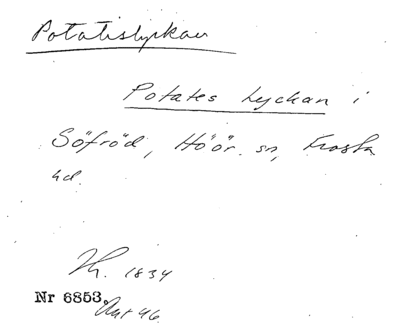 Potatislyckan
Potates Lyckan i
Söfröd, Höör sn, Frosta
hd.
1834
Nr 6853.
Akt 46